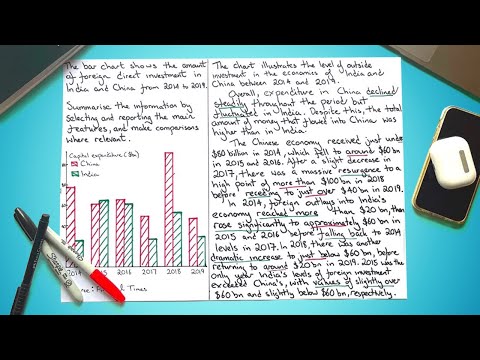 The bar chart shows the amount
of foreign direct investment in
India and China from 2014 to 2019.
Summarise the information by
selecting and reporting the main
features, and make comparisons
where relevant.
Capital expenditure ($bn)
China
India
60
2015
2016
2017
2018
2019
Times
The chart illustrates the level of outside
investment in the economies of India and
China between 2014 and 2019.
Overall, expenditure in China declined
steadily throughout the period but
fluctuated in India. Despite this, the total
amount of money that flowed into China was
higher than in India.
The Chinese economy received just under
$80 billion in 2014, which fell to around $60 bn
in 2015 and 2016. After a slight decrease in
2017, there was a massive resurgence to a
high point of more than $100 bn in 2018
before receding to just over $40 bn in 2019.
In 2014, foreign outlays into India's
economy reached more than $20 bn, then
rose significantly to approximately $60 bn in
2015 and 2016 before falling back to 2014
levels in 2017. In 2018, there was another
dramatic increase to just below $60 bn, before
returning to around $20 bn in 2019. 2015 was the
only year India's levels of foreign investment
exceeded China's, with values of slightly over
$60 bn and slightly below $60 bn, respectively.